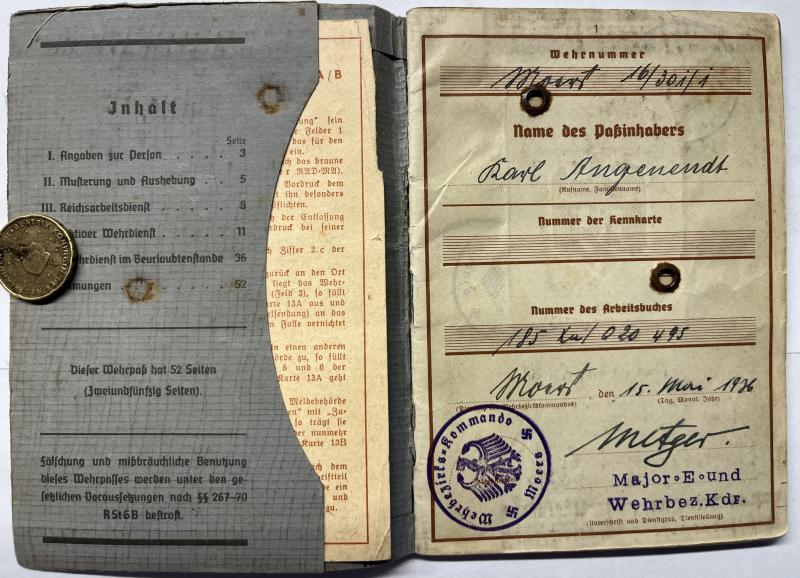 Inhalt
Seite
I. Angaben zur Person . . . . . 3
II. Musterung und Aushebung . . 5
III. Reichsarbeitsdienst . . . . . 8
tiver Wehrdienst . . . . 11
hrdienst im Beurlaubtenstande 36
mungen . . . . . . 52
Dieser Wehrpaß hat 52 Seiten
(Zweiundfünfzig Seiten).
Fälschung und mißbräuchliche Benutzung
dieses Wehrpasses werden unter den ge-
setzlichen Voraussetzungen nach §§ 267–70
RStGB bestraft.
A/B
ung" sein
e Felder 1
das für den
ein.
ch das braune
r RAD-MA).
Vordruck dem
t ihn besonders
flichten.
h der Entlassung
rdruck bei seiner
ch Ziffer 2.c der
zurück an den Ort
liegt das Wehr-
(Feld 3), so füllt
arte 13A aus und
elsendung) an das
n Falle vernichtet
in einen anderen
hörde zu, so füllt
5 und 6 der
Karte 13A geht
Meldebehörde
en" mit „Zu-
so trägt sie
der nunmehr
Karte 13B
ch dem
riftteil
e ein
zu.
Wehrnummer
Moers 16/301/1
Name des Paßinhabers
Karl Angenendt
(Rufname, Familienname)
Nummer der Kennkarte
Nummer des Arbeitsbuches
185 020 495
Moers, den 15. Mai 1936
(Tag, Monat, Jahr)
Wehrbezirks-Kommando Moers
Metger.
Major·E·und
Wehrbez.Kdr.
(Unterschrift und Dienstgrad, Dienststellung)